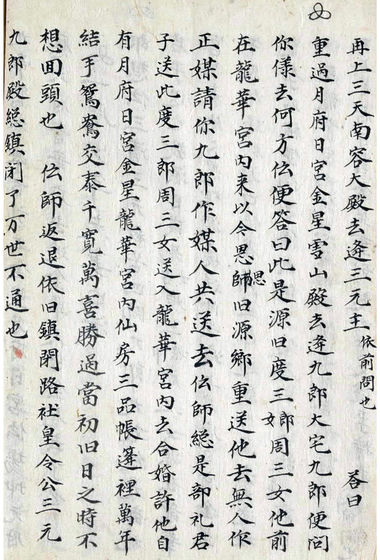 再上三天南容大殿去逢三元主依前問也　荅曰
重過月府日宮金星雪山殿去逢九郎大宅九郎便問
你樣去何方仏便答曰此是源旧度三郎女周三女他前
在龍華宮内来以今思師思旧源鄉重送他去無人作
正媒請你九郎作媒人共送去仏師総是部礼君
子送此度三郎周三女送入龍華宮内去合婚許他自
有月府日宮金星龍華宮内仙房三品帳蓬裡萬年
結手鴛鴦交泰千寬萬喜勝過當初旧日之時不
想回頭也　仏師返退依旧鎮閉路社皇令公三元
九郎殿総鎮閉了万世不通也